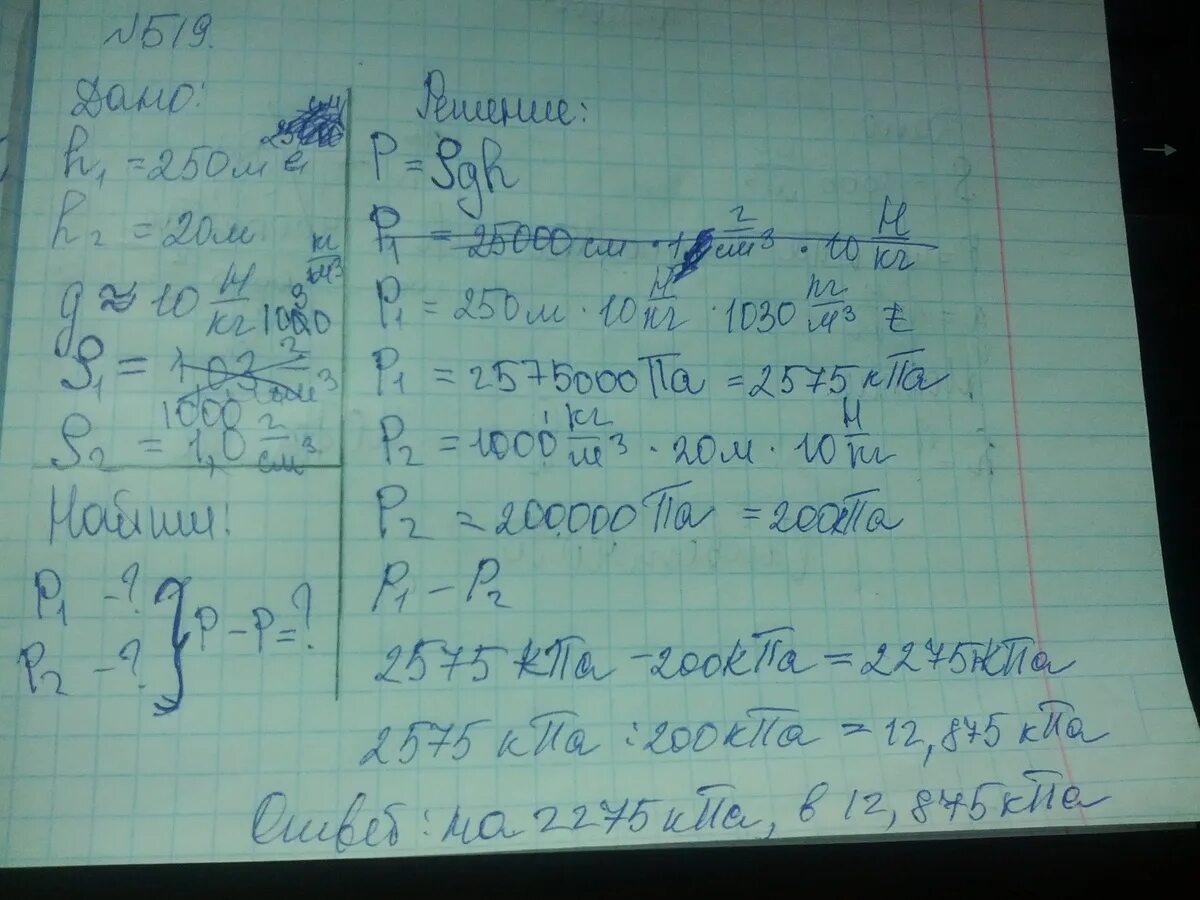 №519.
Дано:
h₁ = 250м
h₂ = 20м
g ≈ 10 Н/кг
1030 кг/м³
ρ₁ = 1,03 г/см³
1000
ρ₂ = 1,0 г/см³
Найти:
P₁ - ?
P₂ - ?
} P - P = ?
Решение:
P = ρgh
P₁ = 25000 см · 1 г/см³ · 10 Н/кг
P₁ = 250м · 10 Н/кг · 1030 кг/м³
P₁ = 2575000 Па = 2575 кПа
P₂ = 1000 кг/м³ · 20м · 10 Н/кг
P₂ = 200000 Па = 200кПа
P₁ - P₂
2575 кПа - 200кПа = 2275кПа
2575 кПа : 200кПа = 12,875 кПа
Ответ: на 2275кПа, в 12,875кПа